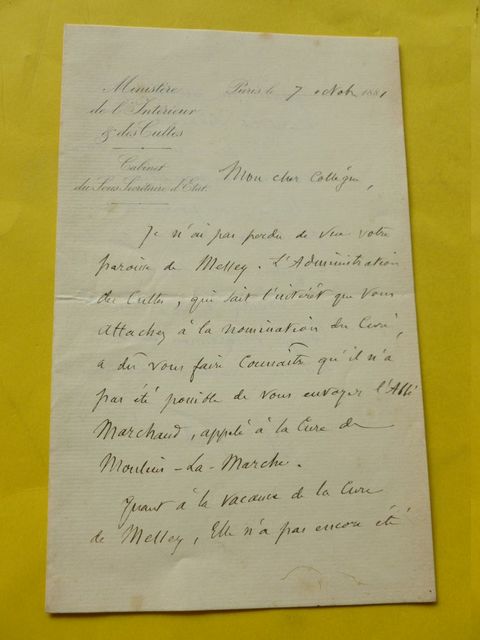 Ministère
de l'Intérieur
& des Cultes
Cabinet
du Sous Secrétaire d'Etat.
Paris le 7 octobre 1881
Mon cher Collègue,
Je n'ai pas perdu de vue votre
paroisse de Messey. L'Administration
des Cultes, qui sait l'intérêt que vous
attachez à la nomination du Curé,
a dû vous faire connaître qu'il n'a
pas été possible de vous envoyer l'Abbé
Marchand, appelé à la Cure de
Moulins-La-Marche.
Quant à la vacance de la Cure
de Messey, Elle n'a pas encore été